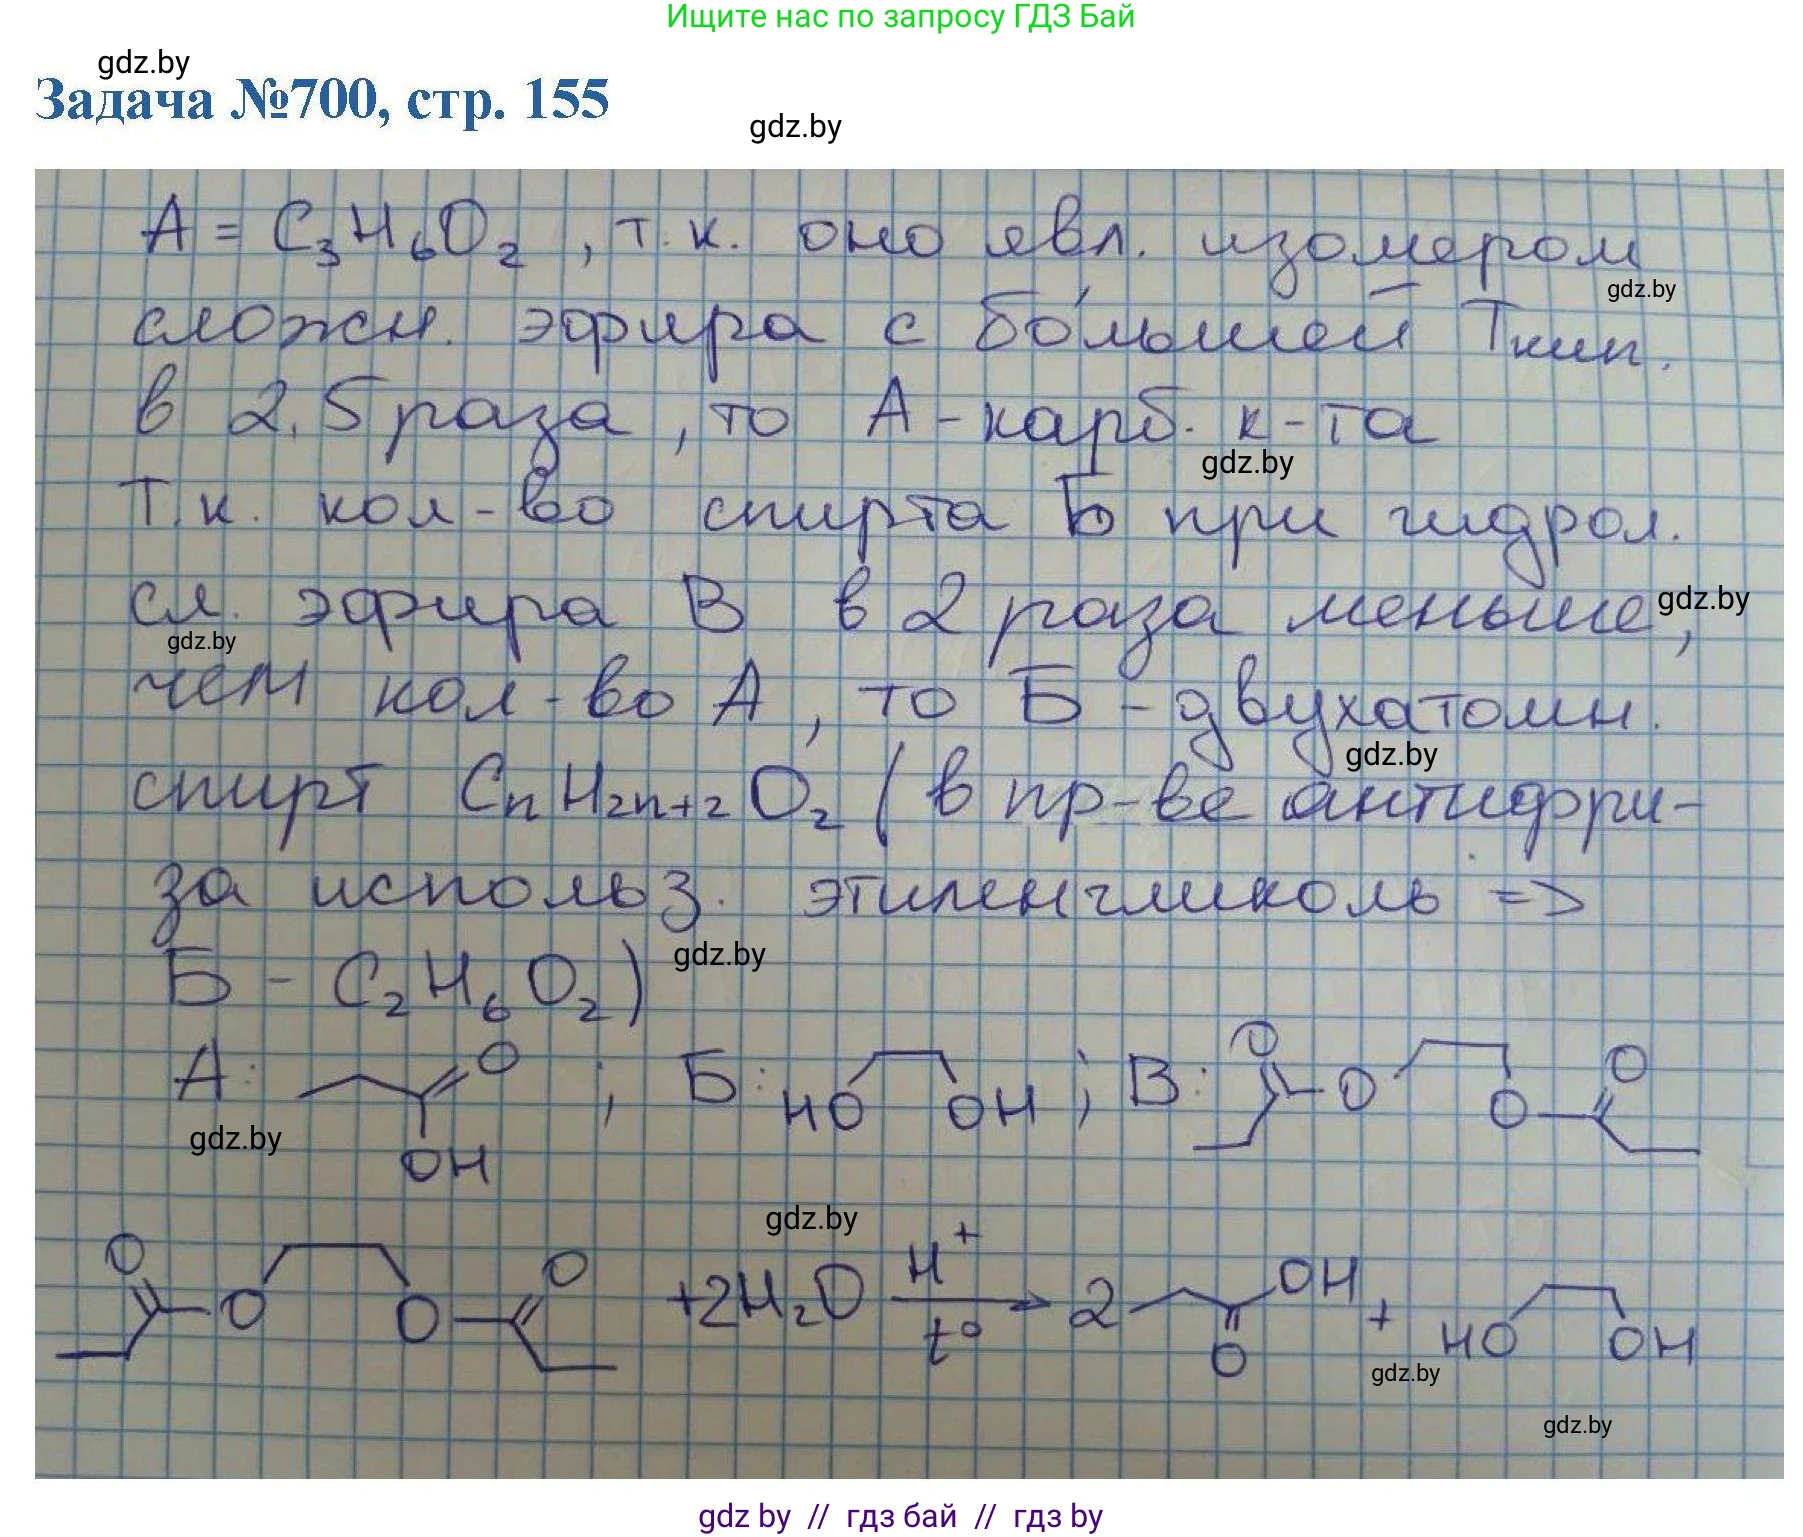 Ищите нас по запросу ГДЗ Бай
gdz.by
Задача №700, стр. 155
gdz.by
A = C₃H₆O₂, т.к. оно явл. изомером
gdz.by
сложн. эфира с бо́льшей Tкип.
в 2,5 раза, то А - карб. к-та
gdz.by
Т.к. кол-во спирта Б при гидрол.
сл. эфира В в 2 раза меньше,
gdz.by
gdz.by
чем кол-во А, то Б - двухатомн.
gdz.by
спирт CnH2n+2O₂ (в пр-ве антифри-
за использ. этиленгликоль =>
gdz.by
Б - C₂H₆O₂)
А: O OH ; Б: HO OH ; В: O O O O
gdz.by
gdz.by
O O O O +2H₂O H⁺ t° 2 OH O + HO OH
gdz.by
gdz.by
gdz by // гдз бай // гдз by